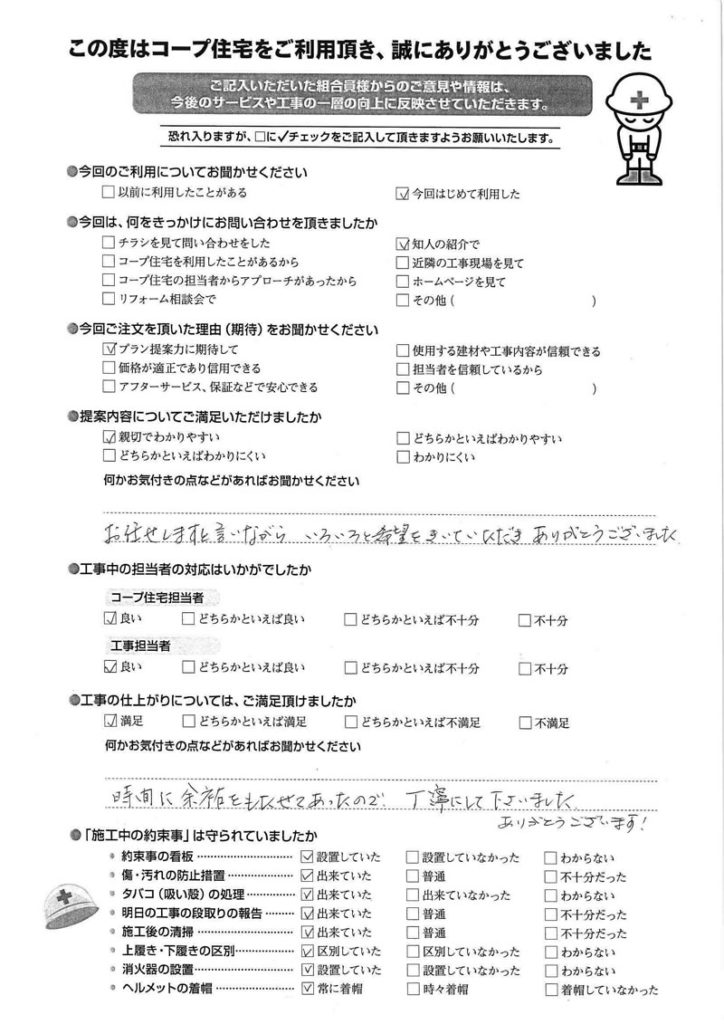 この度はコープ住宅をご利用頂き、誠にありがとうございました
ご記入いただいた組合員様からのご意見や情報は、
今後のサービスや工事の一層の向上に反映させていただきます。
恐れ入りますが、□に✓チェックをご記入して頂きますようお願いいたします。
●今回のご利用についてお聞かせください
□以前に利用したことがある ☑今回はじめて利用した
●今回は、何をきっかけにお問い合わせを頂きましたか
□チラシを見て問い合わせをした ☑知人の紹介で
□コープ住宅を利用したことがあるから □近隣の工事現場を見て
□コープ住宅の担当者からアプローチがあったから □ホームページを見て
□リフォーム相談会で □その他( )
●今回ご注文を頂いた理由(期待)をお聞かせください
☑プラン提案力に期待して □使用する建材や工事内容が信頼できる
□価格が適正であり信用できる □担当者を信頼しているから
□アフターサービス、保証などで安心できる □その他( )
●提案内容についてご満足いただけましたか
☑親切でわかりやすい □どちらかといえばわかりやすい
□どちらかといえばわかりにくい □わかりにくい
何かお気付きの点などがあればお聞かせください
お任せしますと言いながら いろいろと希望をきいていただき ありがとうございました
●工事中の担当者の対応はいかがでしたか
コープ住宅担当者
☑良い □どちらかといえば良い □どちらかといえば不十分 □不十分
工事担当者
☑良い □どちらかといえば良い □どちらかといえば不十分 □不十分
●工事の仕上がりについては、ご満足頂けましたか
☑満足 □どちらかといえば満足 □どちらかといえば不満足 □不満足
何かお気付きの点などがあればお聞かせください
時間に余裕をもたせてあったので、丁寧にして下さいました
ありがとうございます!
●「施工中の約束事」は守られていましたか
●約束事の看板 ☑設置していた □設置していなかった □わからない
●傷・汚れの防止措置 ☑出来ていた □普通 □不十分だった
●タバコ(吸い殻)の処理 ☑出来ていた □出来ていなかった □わからない
●明日の工事の段取りの報告 ☑出来ていた □普通 □不十分だった
●施工後の清掃 ☑出来ていた □普通 □不十分だった
●上履き・下履きの区別 ☑区別していた □区別していなかった □わからない
●消火器の設置 ☑設置していた □設置していなかった □わからない
●ヘルメットの着帽 ☑常に着帽 □時々着帽 □着帽していなかった